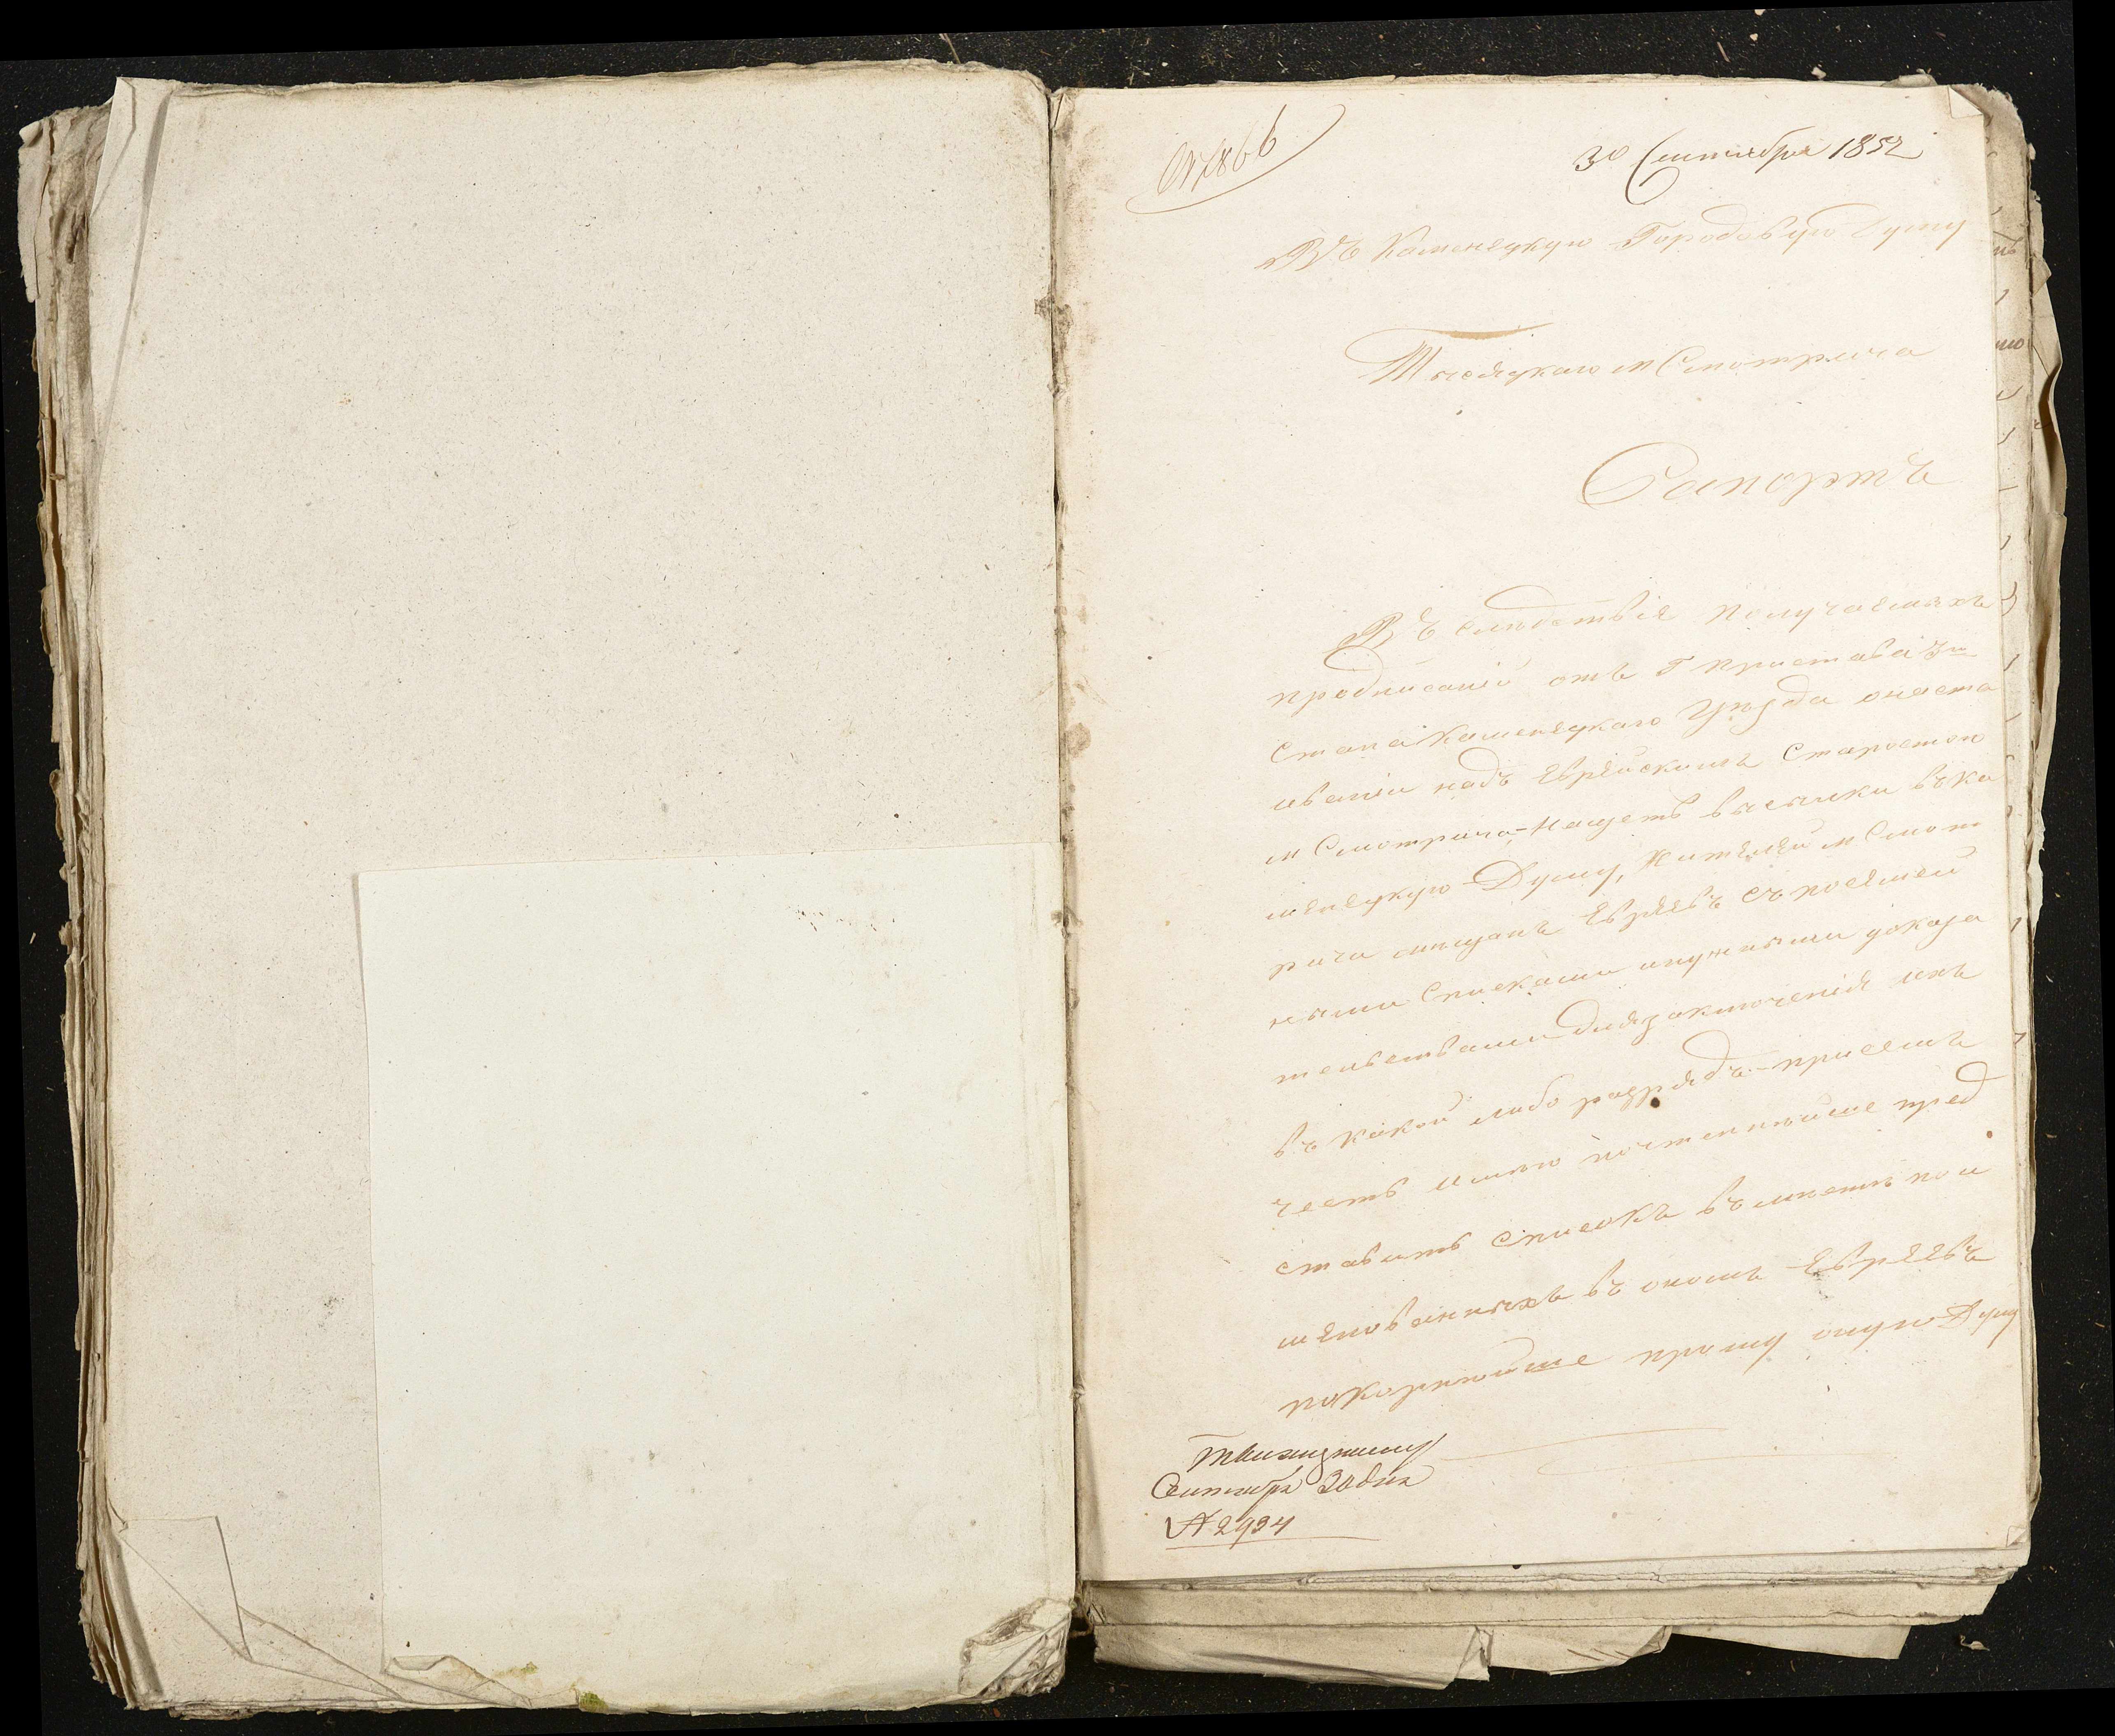 № 1866
30 Сентября 1852
Въ Каменецкую Городовую Думу
Тысяцкаго м Смотрича
Рапортъ
Въ слѣдствіе получаемыхъ
предписаній отъ Г Пристава 3го
стана Каменецкаго Уѣзда онаста
иваніи надъ Еврейскимъ Старостою
м Смотрича, нащетъ высылки въ Ка
менецкую Думу, жителей м Смот
рича мещанъ Евреевъ съ посемей
ными Списками инужными доказа
тельствами для заключенія ихъ
въ какой либо разрядъ – присемъ
честь имѣю почтеннѣйше пред
ставить Списокъ въ мѣстѣ пои
менованныхъ въ ономъ Евреевъ
покорнѣйше прошу оную Думу
Сентября 30 дня
№ 2934